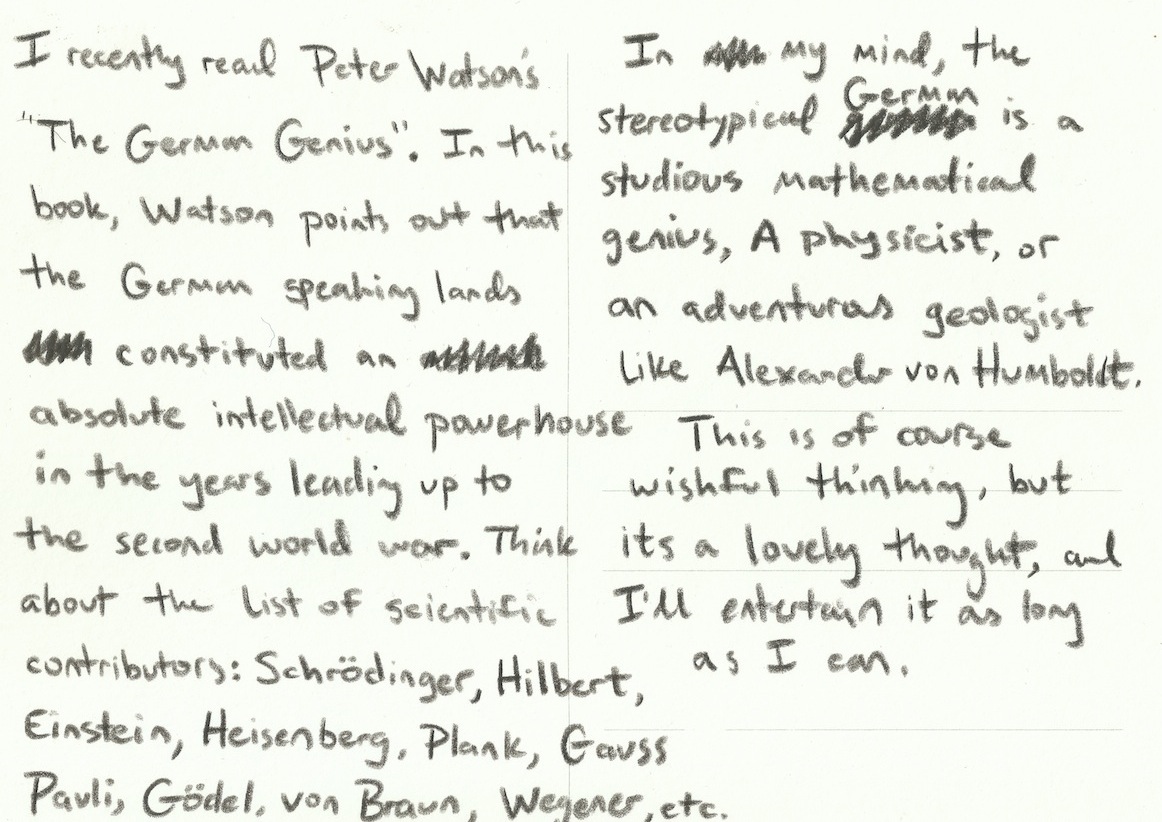 I recently read Peter Watson's
"The German Genius". In this
book, Watson points out that
the German speaking lands
constituted an
absolute intellectual powerhouse
in the years leading up to
the second world war. Think
about the list of scientific
contributors: Schrödinger, Hilbert,
Einstein, Heisenberg, Plank, Gauss
Pauli, Gödel, von Braun, Wegener, etc.
In my mind, the
stereotypical German is a
studious mathematical
genius, A physicist, or
an adventuras geologist
like Alexander von Humboldt.
This is of course
wishful thinking, but
its a lovely thought, and
I'll entertain it as long
as I can.